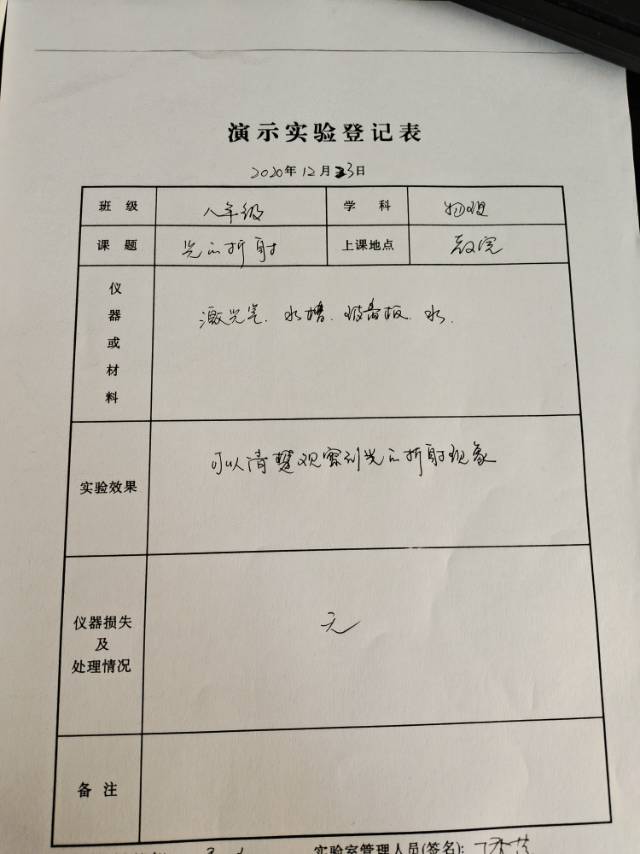 演示实验登记表
2020年12月23日
班级 八年级 学科 物理
课题 光的折射 上课地点 教室
仪器或材料 激光笔、水槽、玻璃板、水.
实验效果 可以清楚观察到光的折射现象
仪器损失及处理情况 无
备注
实验室管理人员(签名):